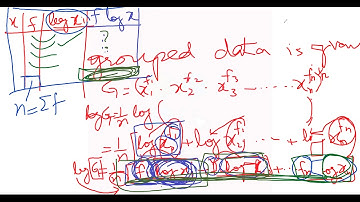 x f log x f log x
grouped data is given
G = x₁^f₁ · x₂^f₂ · x₃^f₃ ...... xₙ^fₙ
n = Σf
log G = 1/n log (
)
= 1/n [ log x₁^f₁ + log x₂^f₂ ..... + log xₙ^fₙ
log G = 1/n f₁ log x₁ + f₂ log x₂ + .. fₙ log x